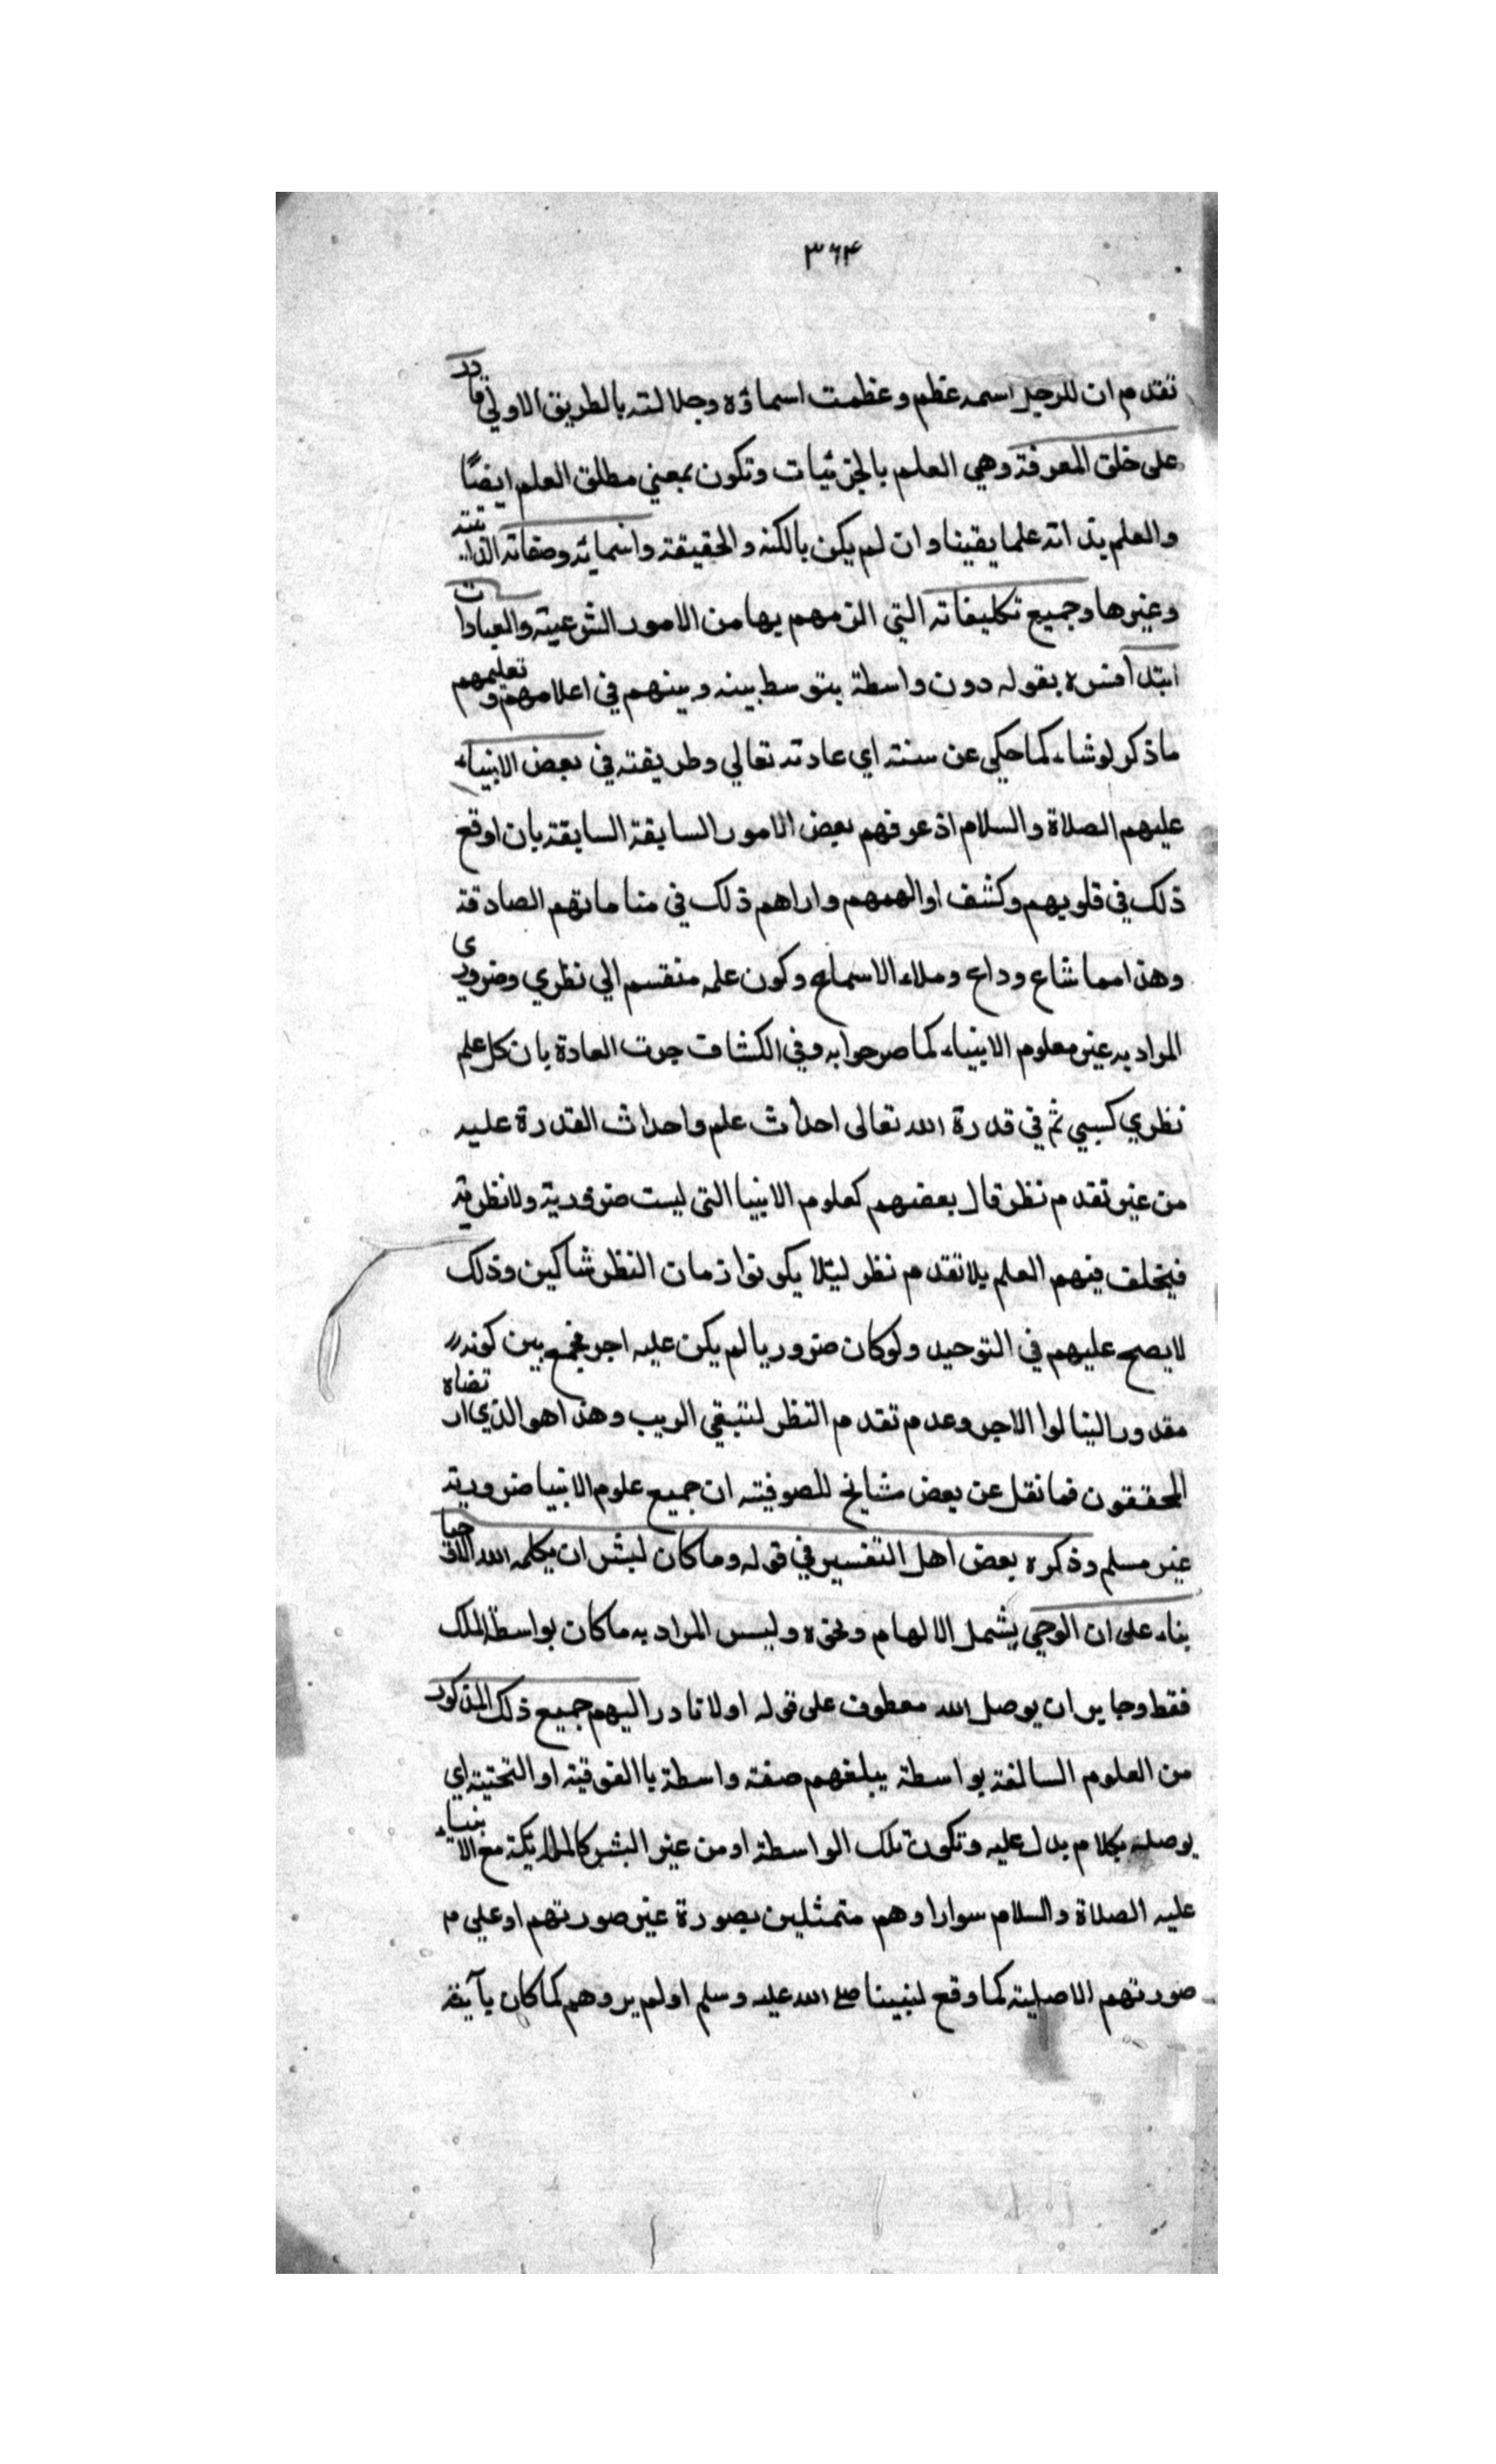 ٣٦٤
تقدم ان للرجل اسمه عظم وعظمت اسماؤه وجلالته بالطريق الاولي قادر
على خلق المعرفة وهي العلم بالجزئيات وتكون بمعني مطلق العلم ايضًا
والعلم بذاته علما يقينا وان لم يكن بالكنه والحقيقة واسمائه وصفاته الذاتية
وغيرها وجميع تكليفاته التي الزمهم بها من الامور الشرعية والعبادات
ابتدا فسره بقوله دون واسطة بتوسط بينه وبينهم في اعلامهم وتعليمهم
ماذكر لوشاء كما حكي عن سنته اي عادته تعالي وطريقته في بعض الانبياء
عليهم الصلاة والسلام اذ عرفهم بعض الامور السابقة السابقة بان اوقع
ذلك في قلوبهم وكشف او الهمهم واراهم ذلك في مناماتهم الصادقة
وهذا مما شاع وذاع وملاء الاسماع وكون علمه منقسم الي نظري وضروري
المراد به غير معلوم الانبياء كما صرحوا به وفي الكشاف جرت العادة بان كل علم
نظري كسبي ثم في قدرة الله تعالى احداث علم واحداث القدرة عليه
من غير تقدم نظر قال بعضهم كعلوم الانبيا التى ليست ضرورية ولا نظرية
فيخلف فيهم العلم بلا تقدم نظر ليئلا يكونوا زمان النظر شاكين وذلك
لا يصح عليهم في التوحيد ولو كان ضروريا لم يكن عليه اجر فجمع بين كونه
مقدورا لينالوا الاجر وعدم تقدم النظر لنتبقي الريب وهذا هو الذي ارتضاه
المحققون فما نقل عن بعض مشايخ للصوفية ان جميع علوم الانبيا ضرورية
غير مسلم وذكره بعض اهل التفسير في قوله وما كان لبشر ان يكلمه الله الا وحيا
بناء على ان الوحي يشمل الالهام ونحوه وليس المراد به ما كان بواسطة الملك
فقط وجايز ان يوصل الله معطوف على قوله اولا قادر اليهم جميع ذلك المذكور
من العلوم السالفة بواسطة يبلغهم صفة واسطة باالفوقية او التحتية اي
يوصله بكلام يدل عليه وتكون تلك الواسطة او من غير البشر كالملايكة مع الانبياء
عليه الصلاة والسلام سوارا وهم متمثلين بصورة غير صورتهم او علي م
صورتهم الاصلية كما وقع لنبينا صلى الله عليه وسلم او لم يروهم كما كان يأتيه